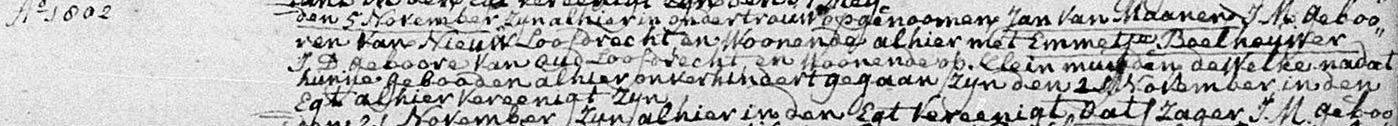 Aº 1802
den 5 November Zyn alhier in ondertrouw opgenoomen Jan Van Maanen J. M. geboo
ren Van Nieuw Loosdrecht en Woonende alhier met Emmetje Boelhouwer
J. D. geboore Van Oud Loosdrecht en Woonende op Klein muyden dewelke nadat
hunne gebooden alhier onverhindert gegaan Zyn den 21 November in den
Egt alhier Vereenigt Zyn
November Zyn alhier in den Egt Vereenigt Zager J. M. geboo